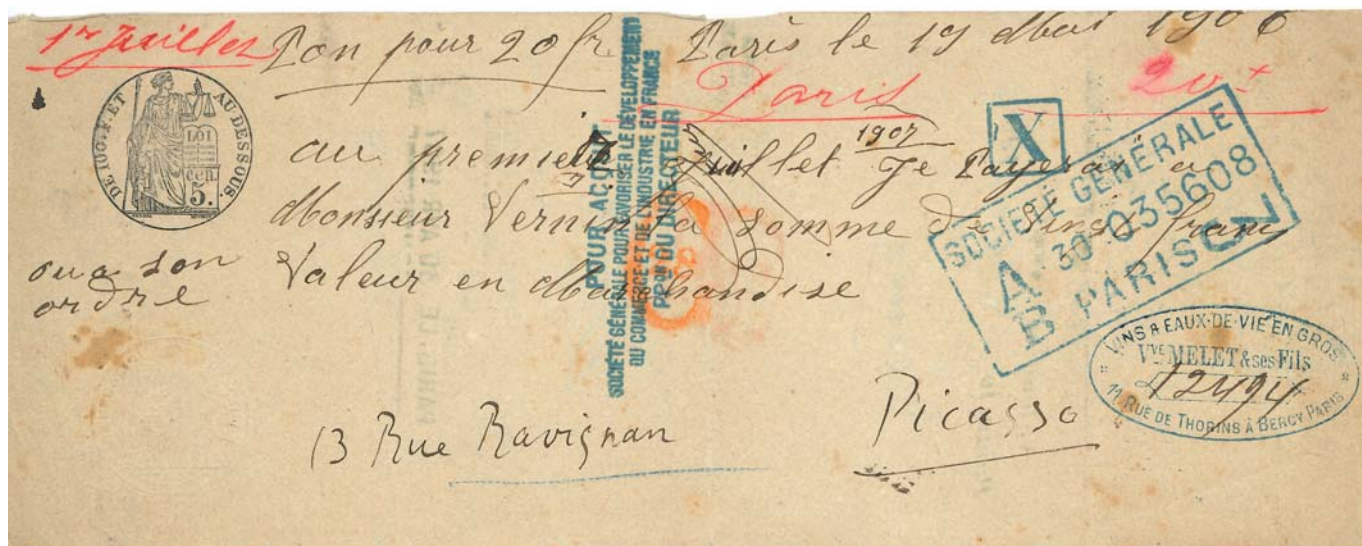 1er Juillet
Bon pour 20 fr Paris le 19 Mai 1906
Paris 20
DE 100 F. ET AU DESSOUS.
LOI
5 cen.
au premier Juillet 1907 Je Payerai a
Monsieur Vernin la somme de Vingt franc
ou a son ordre
Valeur en Marchandise
POUR ACQUIT
SOCIÉTÉ GÉNÉRALE POUR FAVORISER LE DÉVELOPPEMENT
DU COMMERCE ET DE L'INDUSTRIE EN FRANCE
PPon DU DIRECTEUR
X
SOCIÉTÉ GÉNÉRALE
AB 30 035608
PARIS
VINS & EAUX-DE-VIE EN GROS
Vve MELET & ses Fils
12494
11, RUE DE THORINS À BERCY PARIS
13 Rue Ravignan
Picasso